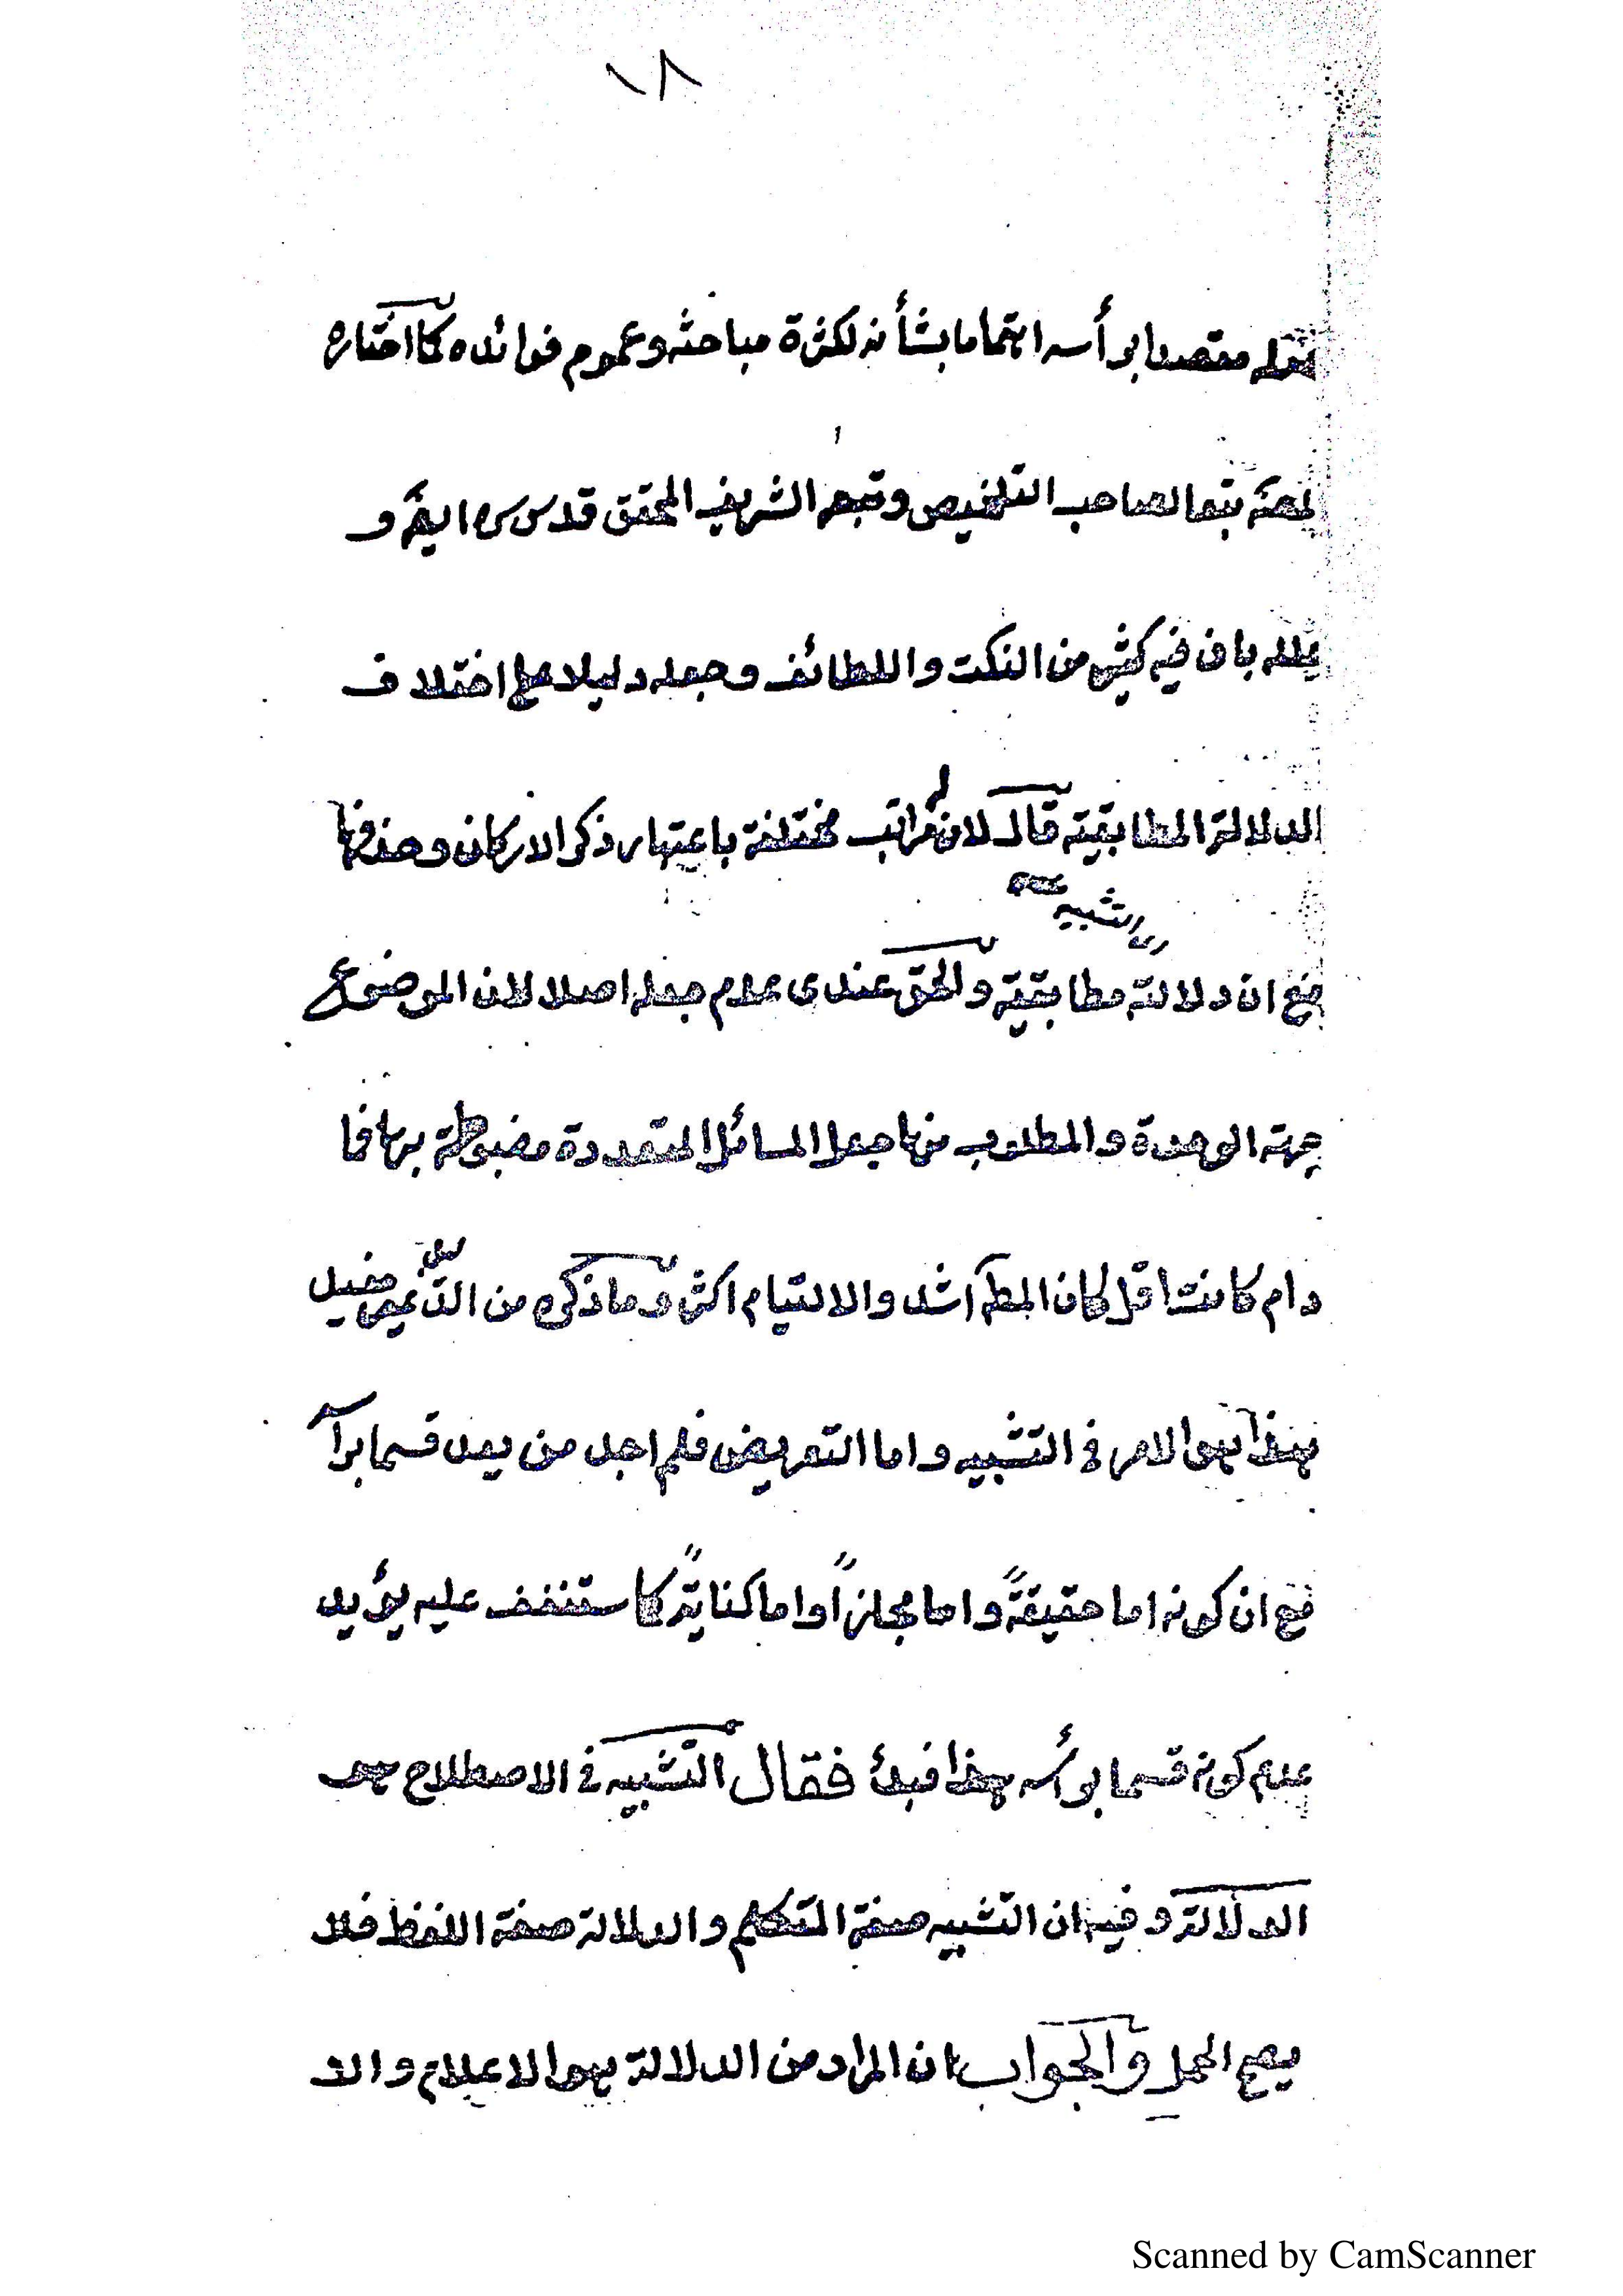 ١٨
مقصدا برأسه اهتماما بشأنه لكثرة مباحثه وعموم فوائده كما اختاره
المصنّف تبعا لصاحب التلخيص وتبعه الشريف المحقق قدس سره ايضا و
علله بان فيه كثير من النكت واللطائف وجعله دليلا على اختلاف
الدلالة المطابقية قال لان له مراتب مختلفة باعتبار ذكر الاركان وحذفها
اى التشبيه
مع ان دلالته مطابقية والحق عندى عدم جعله اصلا لان الموضوع
جهة الوحدة والمطلوب منها جعل المسائل المتعددة مضبوطة بها فما
دام كانت اقل لكان المط اشد والالتيام اكثر وما ذكره من
هذا هو الامر فى التشبيه واما التعريض فلم اجد من يعد قسما برأسه
مع ان كونه اما حقيقةً واما مجازاً واما كنايةً كما ستقف عليه يؤيد
عدم كونه قسما برأسه هذا فبدأ فقال التشبيه فى الاصطلاح هو
الدلالة وفيه ان التشبيه صفة المتكلم والدلالة صفة اللفظ فلا
يصح الحمل والجواب ان المراد من الدلالة هو الاعلام والا
Scanned by CamScanner